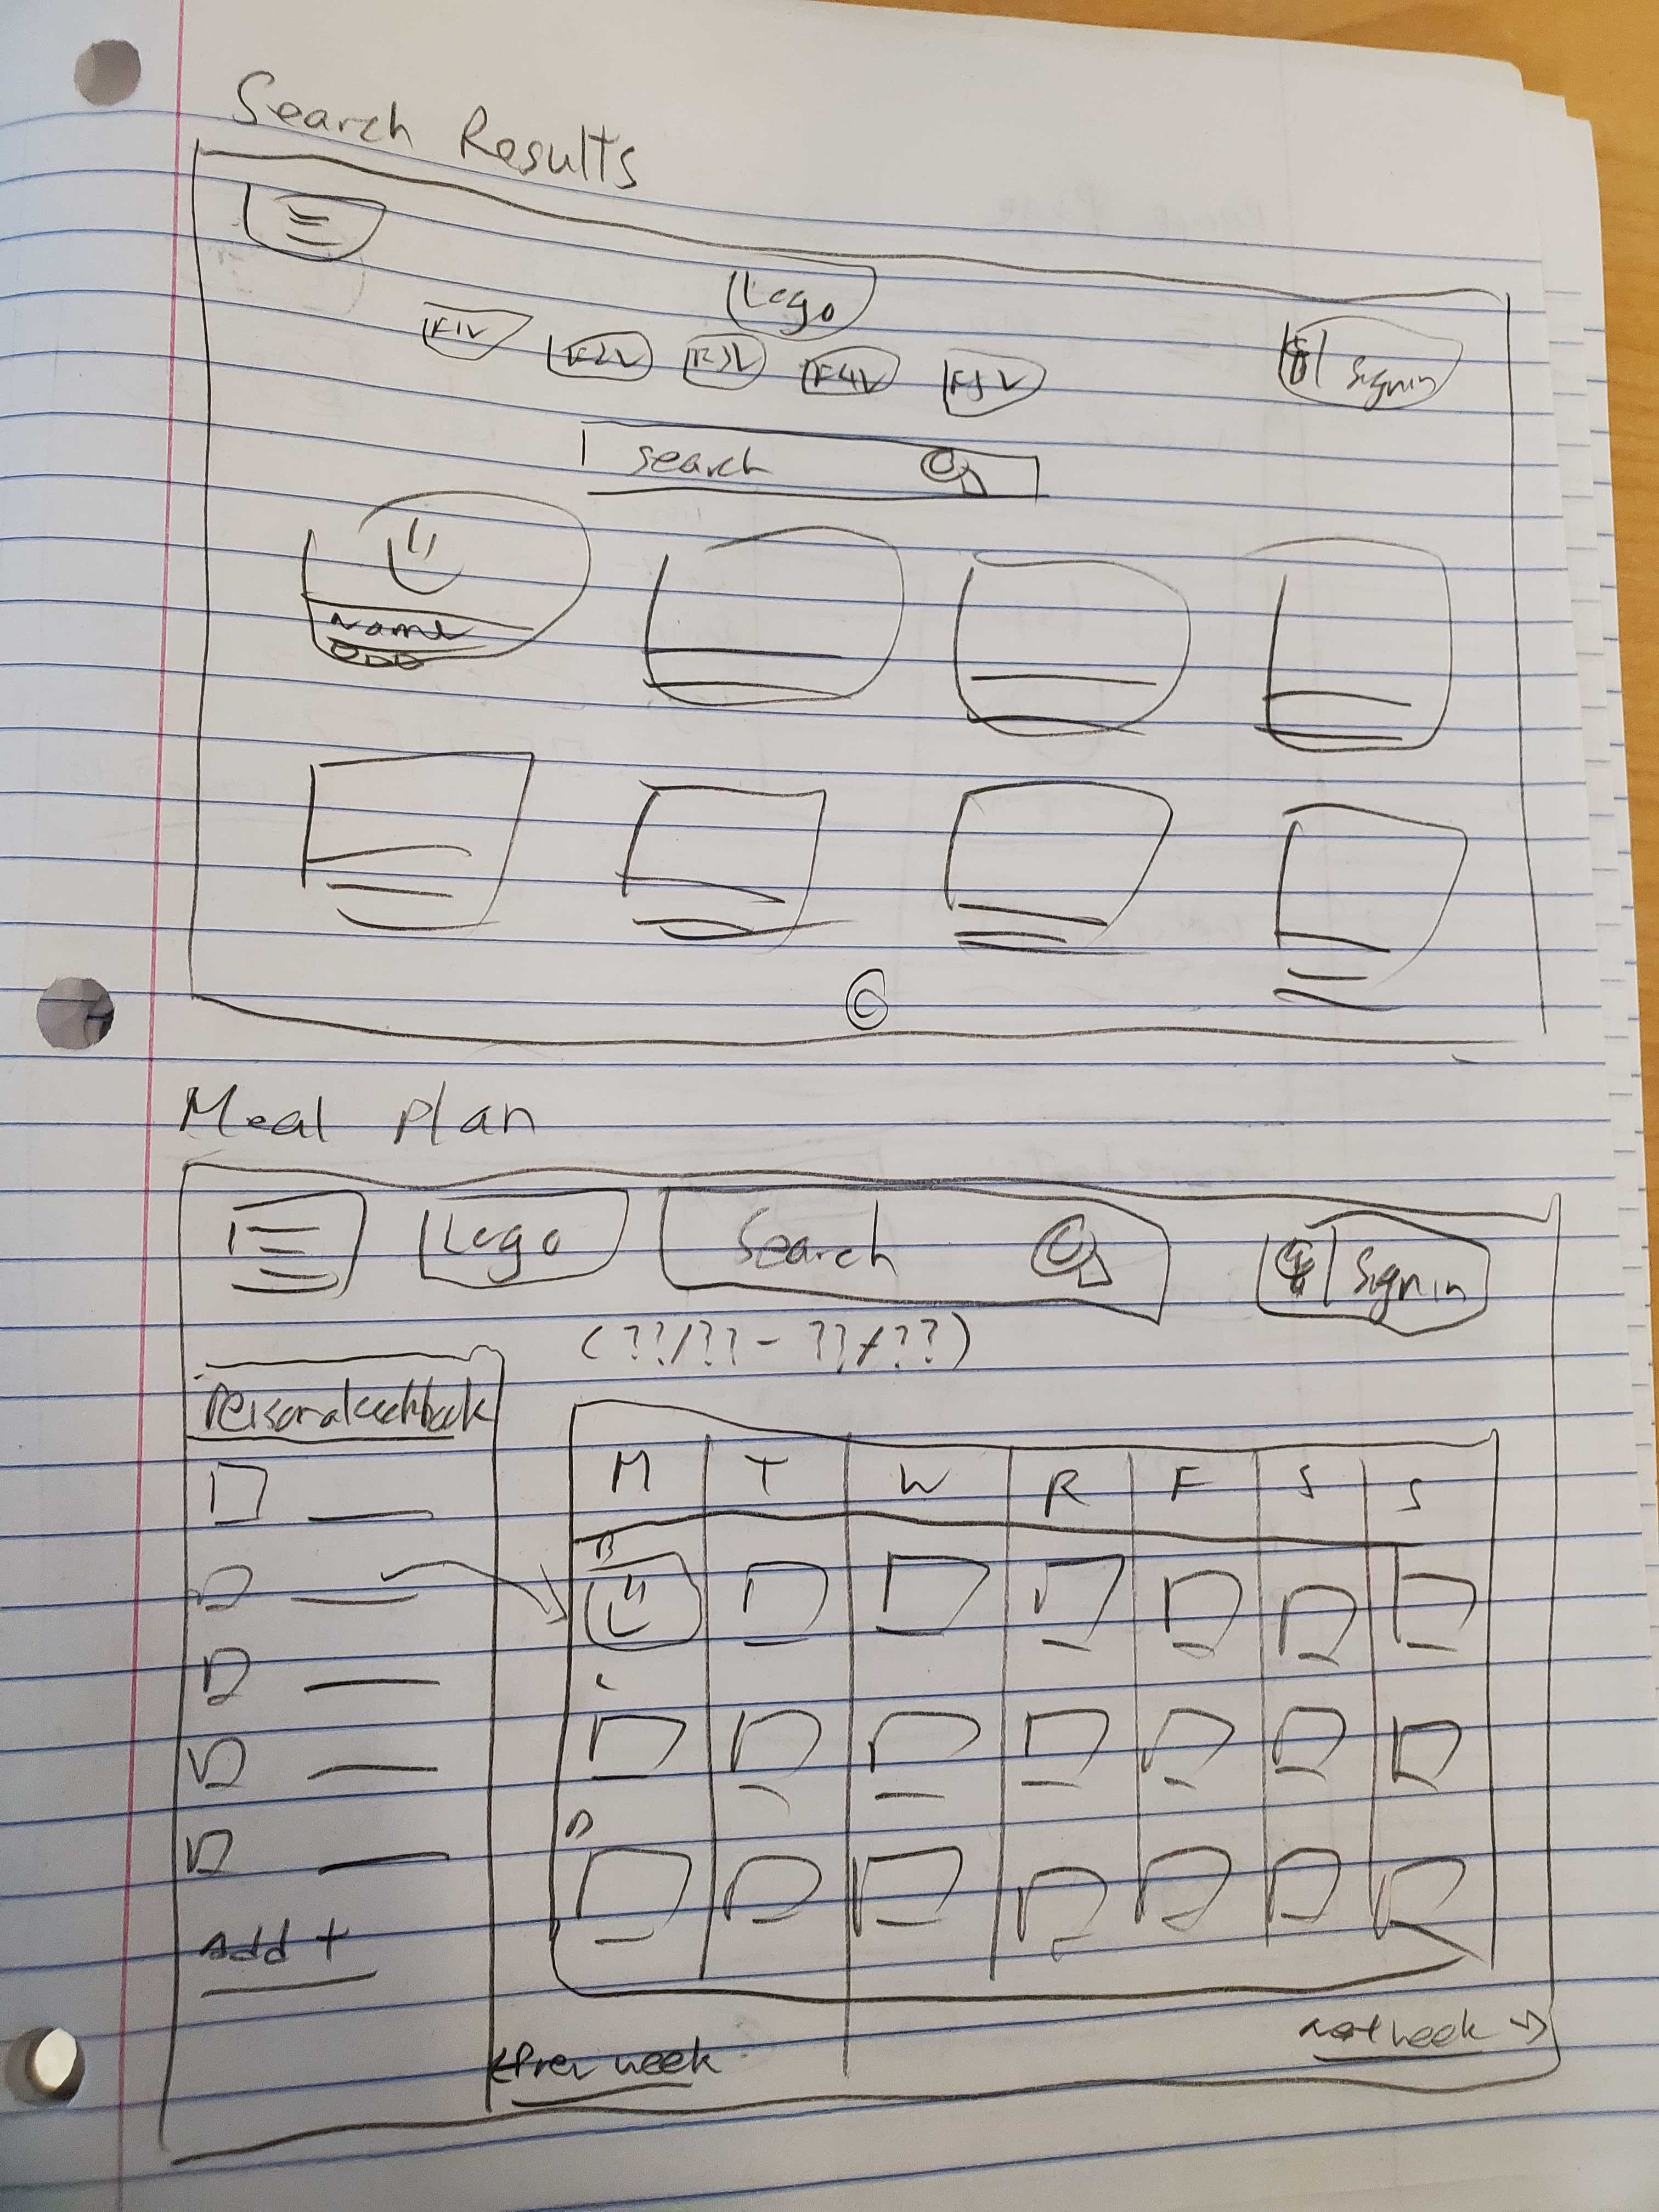 Search Results
Logo
F1V F2V F3V F4V F5V
Sign in
search
Name
©
Meal plan
Logo Search Sign in
(??/?? - ??/??)
Personal cookbook
M T W R F S S
B
L
D
Add +
<Prev week
Next week →